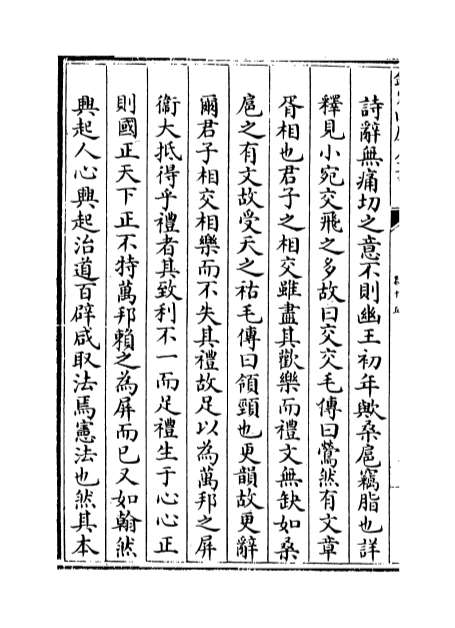 詩辭無痛切之意不則幽王初年歟桑扈竊脂也詳
釋見小宛交飛之多故曰交交毛傳曰鶯然有文章
胥相也君子之相交雖盡其歡樂而禮文無缺如桑
扈之有文故受天之祜毛傳曰領頸也更韻故更辭
爾君子相交相樂而不失其禮故足以為萬邦之屏
衛大抵得乎禮者其致利不一而足禮生于心心正
則國正天下正不特萬邦賴之為屏而已又如翰然
興起人心興起治道百辟咸取法焉憲法也然其本